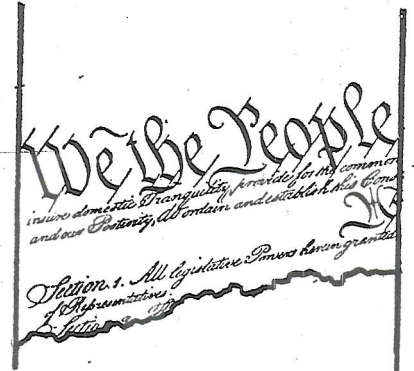 We the People
insure domestic Tranquility, provide for the common
and our Posterity, do ordain and establish this Cons
Section. 1. All legislative Powers herein granted
of Representatives.
Section